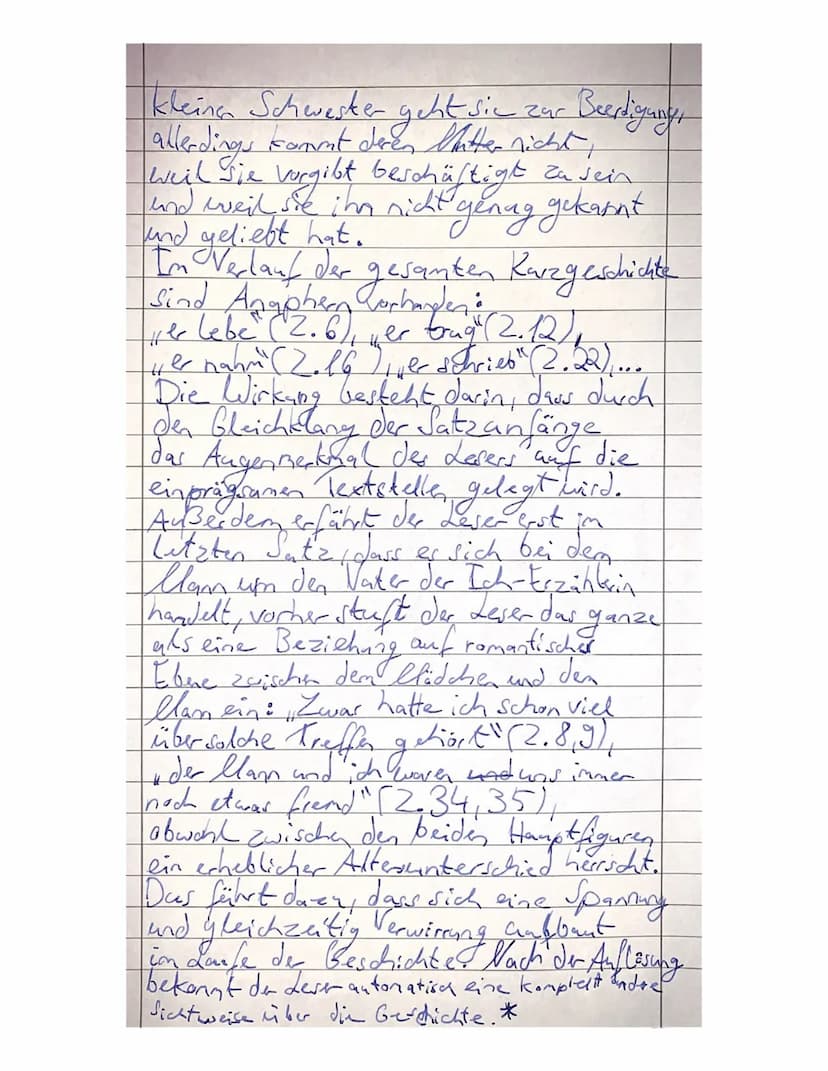 kleinen Schwester geht sie zur Beerdigung,
allerdings kommt deren Mutter nicht,
weil sie vorgibt beschäftigt zu sein
und weil sie ihn nicht genug gekannt
und geliebt hat.
Im Verlauf der gesamten Kurzgeschichte
sind Anaphern vorhanden:
„er lebe“ (Z. 6), „er trug“ (Z. 12),
„er nahm“ (Z. 16), „er schrieb“ (Z. 22),...
Die Wirkung besteht darin, dass durch
den Gleichklang der Satzanfänge
das Augenmerkmal des Lesers auf die
einprägsamen Textstellen gelegt wird.
Außerdem erfährt der Leser erst im
letzten Satz, dass es sich bei dem
Mann um den Vater der Ich-Erzählerin
handelt, vorher stuft der Leser das ganze
als eine Beziehung auf romantischer
Ebene zwischen dem Mädchen und den
Mann ein: „Zwar hatte ich schon viel
über solche Treffen gehört“ (Z. 8,9),
„der Mann und ich waren und uns immer
noch etwas fremd“ (Z. 34, 35),
obwohl zwischen den beiden Hauptfiguren
ein erheblicher Altersunterschied herrscht.
Das führt dazu, dass sich eine Spannung
und gleichzeitig Verwirrung aufbaut
im Laufe der Geschichte. Nach der Auflösung
bekommt der Leser automatisch eine komplett andre
Sichtweise über die Geschichte.*